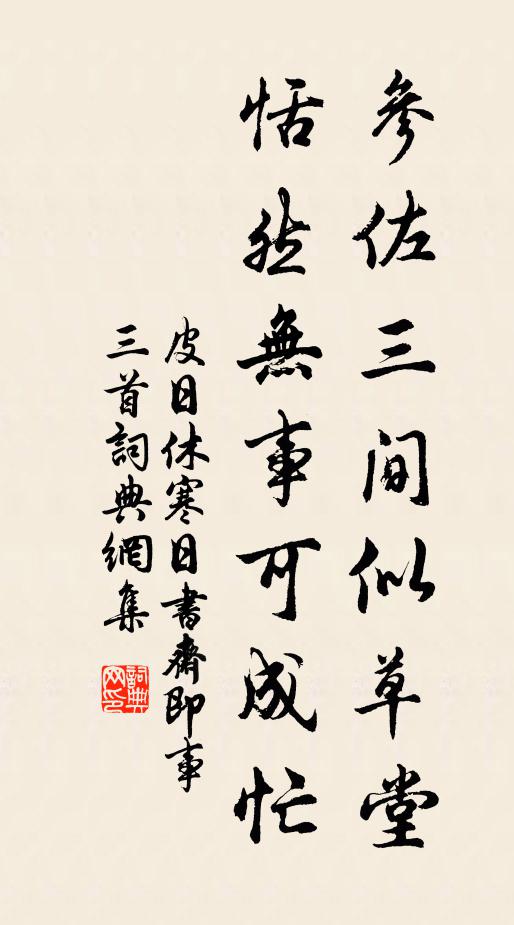 參佐三間似草堂
恬然無事可成忙
皮日休寒日書齋即事
三首詞典網集
詞典
网印